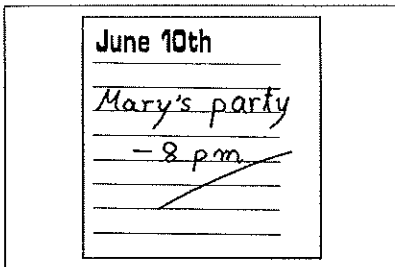 June 10th
Mary's party
-8 pm